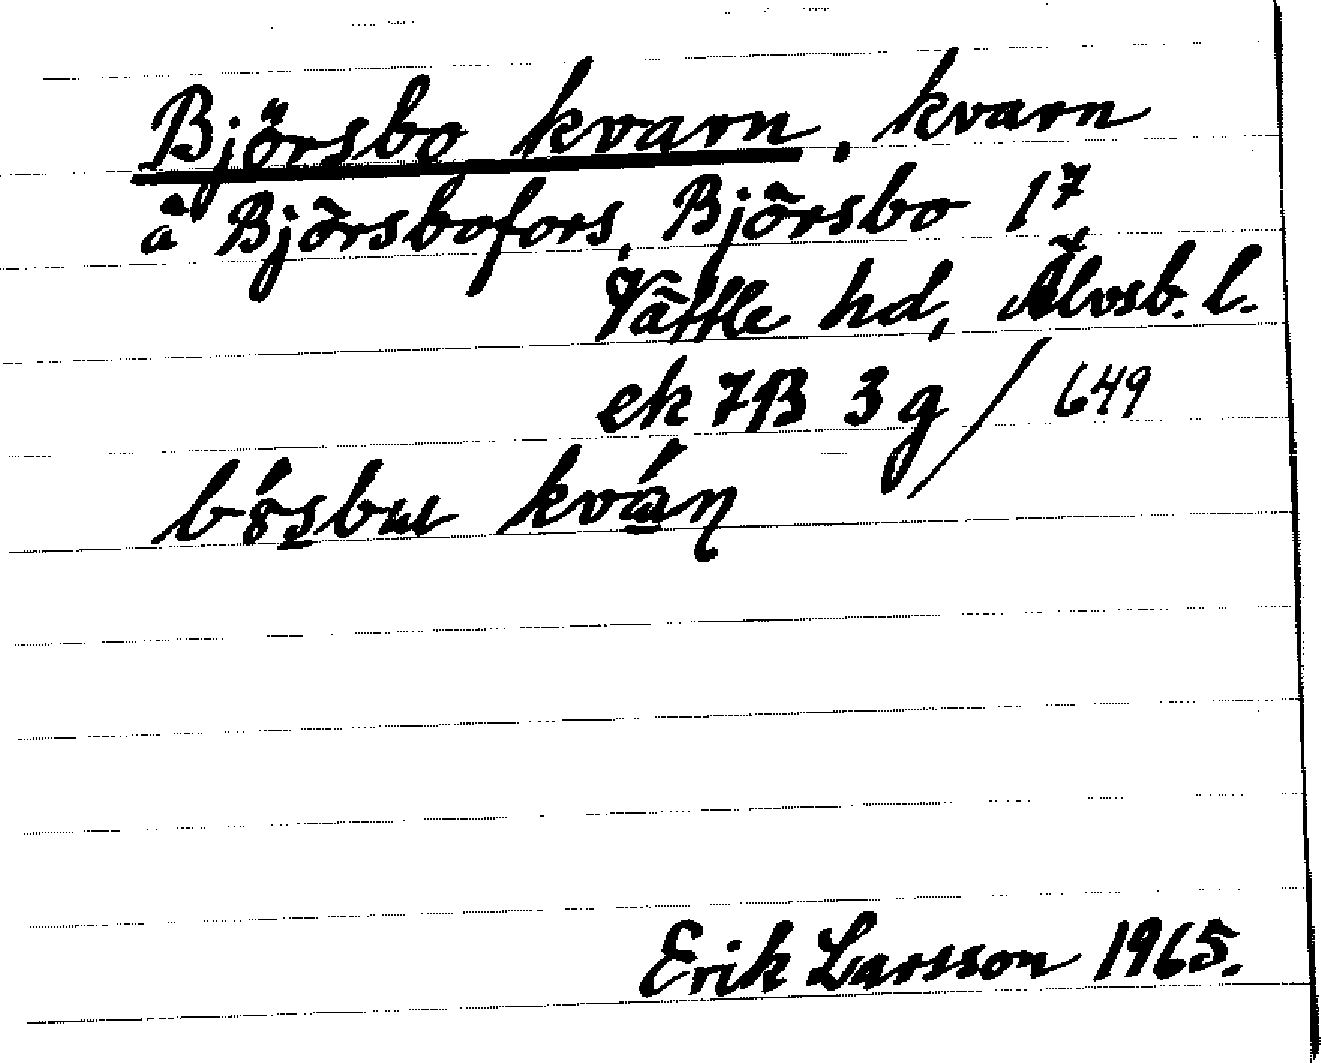 Björsbo kvarn, kvarn
å Björsbofors, Björsbo 1⁷
Vättle hd, Älvsb. l.
ek 7B 3 g / 649
kván
Erik Larsson 1965.